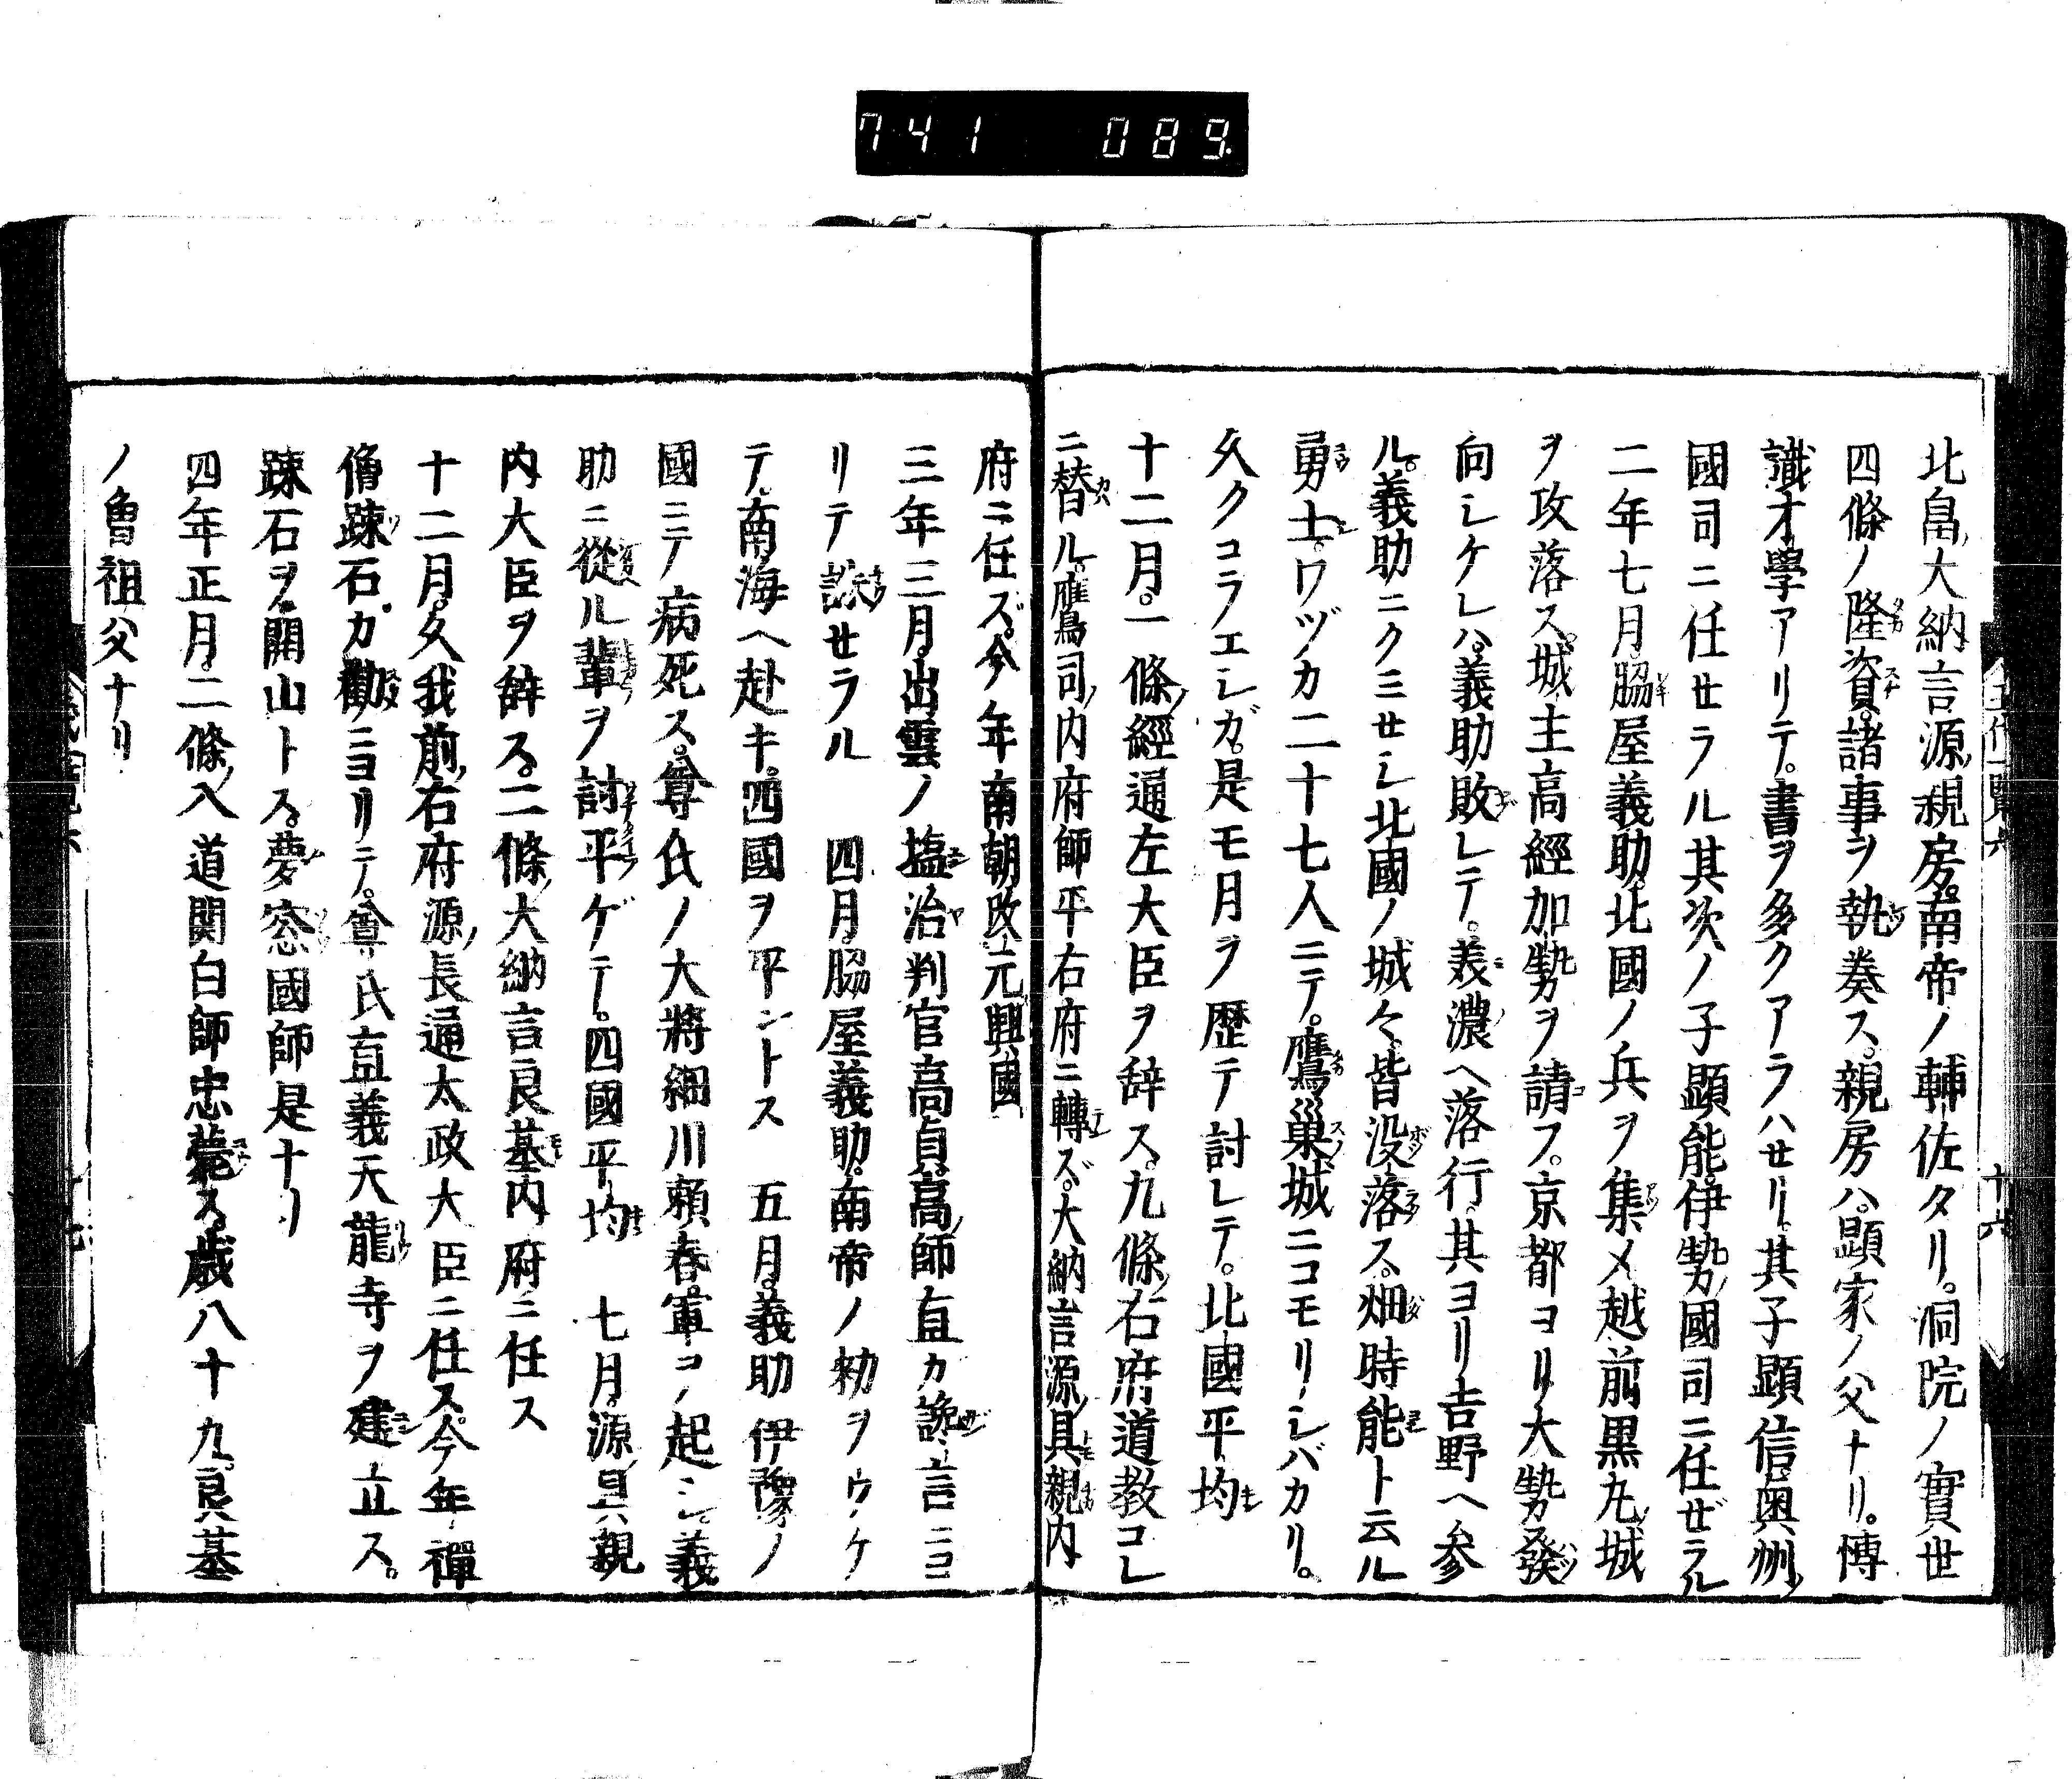 741 089
北畠大納言源親房南帝ノ輔佐タリ洞院ノ實世
四條ノ隆資諸事ヲ執奏ス親房ハ顕家ノ父ナリ博
識才學アリテ書ヲ多クアラハセリ其子顕信奥州
國司ニ任セラル其次ノ子顕能伊勢國司ニ任ゼラル
二年七月脇屋義助北國ノ兵ヲ集メ越前黒丸城
ヲ攻落ス城主高經加勢ヲ請フ京都ヨリ大勢發
向シケレハ義助敗レテ美濃ヘ落行其ヨリ吉野ヘ参
ル義助ニクミセシ北國ノ城々皆没落ス畑時能ト云ル
勇士ワヅカ二十七人ニテ鷹巣城ニコモリシバカリ
久クコラヱシガ是モ月ヲ歴テ討レテ北國平均
十二月一條經通左大臣ヲ辞ス九條右府道教コレ
ニ替ル鷹司内府師平右府ニ轉ズ大納言源具親内
府ニ任ズ今年南朝改元興國
三年三月出雲ノ塩冶判官高貞高師直カ讒言ニヨ
リテ誅セラル 四月脇屋義助南帝ノ勅ヲウケ
テ南海ヘ赴キ四國ヲ平ントス 五月義助伊豫ノ
國ニテ病死ス尊氏ノ大將細川頼春軍ヲ起シ義
助ニ從ル輩ヲ討平ゲテ四國平均 七月源具親
内大臣ヲ辞ス二條大納言良基内府ニ任ス
十二月久我前右府源長通太政大臣ニ任ス今年禪
僧踈石カ勸ニヨリテ尊氏直義天龍寺ヲ建立ス
踈石ヲ開山トス夢窓國師是ナリ
四年正月二條入道関白師忠薨ス歳八十九良基
ノ曽祖父ナリ